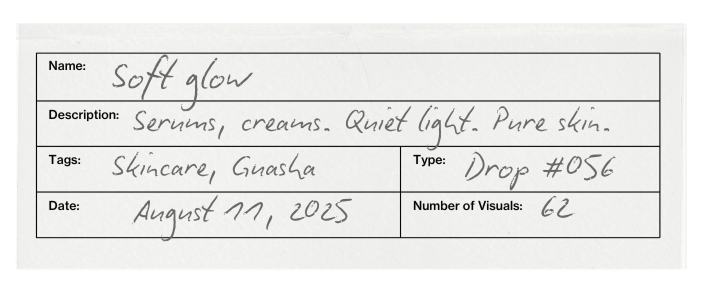 Name: Soft glow
Description: Serums, creams. Quiet light. Pure skin.
Tags: Skincare, Guasha Type: Drop #056
Date: August 11, 2025 Number of Visuals: 62